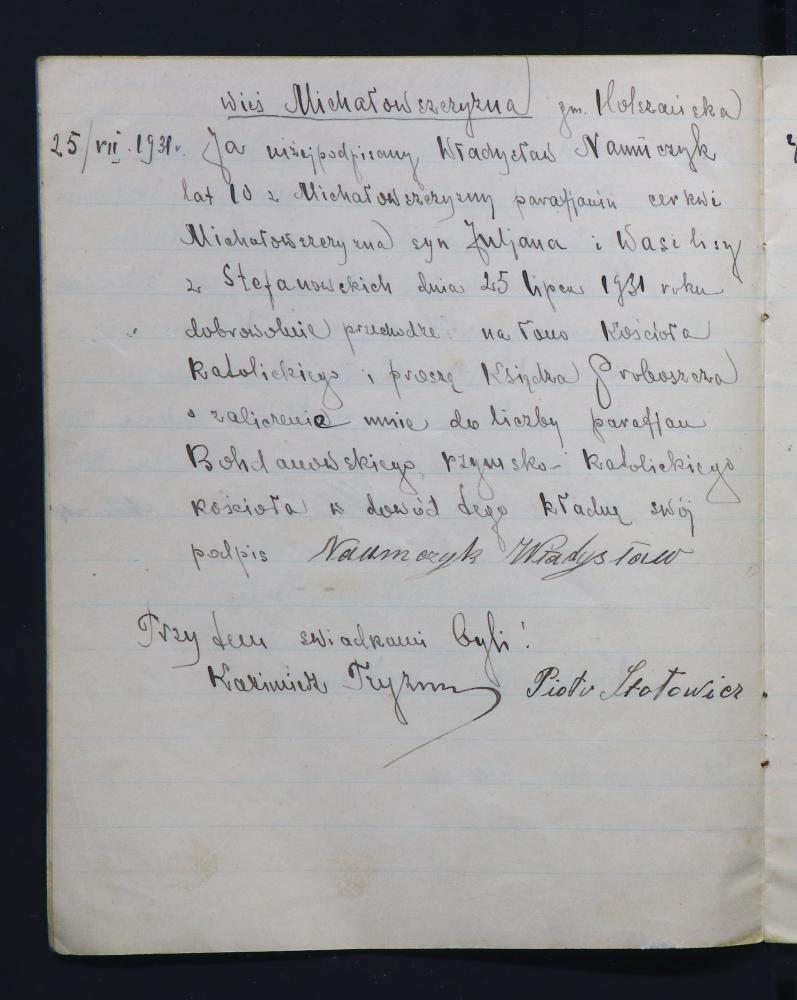 wieś Michałowszczyzna gm. Holszańska
25/VII.1931r. Ja niżej podpisany Władysław Naumczyk
lat 10 z Michałowszczyzny parafjanin cerkwi
Michałowszczyzna syn Juljana i Wasilisy
z Stefanowskich dnia 25 lipca 1931 roku
dobrowolnie przechodzę na łono Kościoła
Katolickiego i proszę Księdza Proboszcza
o zaliczenie mnie do liczby parafjan
Bohdanowskiego rzymsko-katolickiego
kościoła w dowód tego kładnę swój
podpis Naumczyk Władysław
Przy tem swiadkami byli:
Kazimierz Piotr Stotowicz